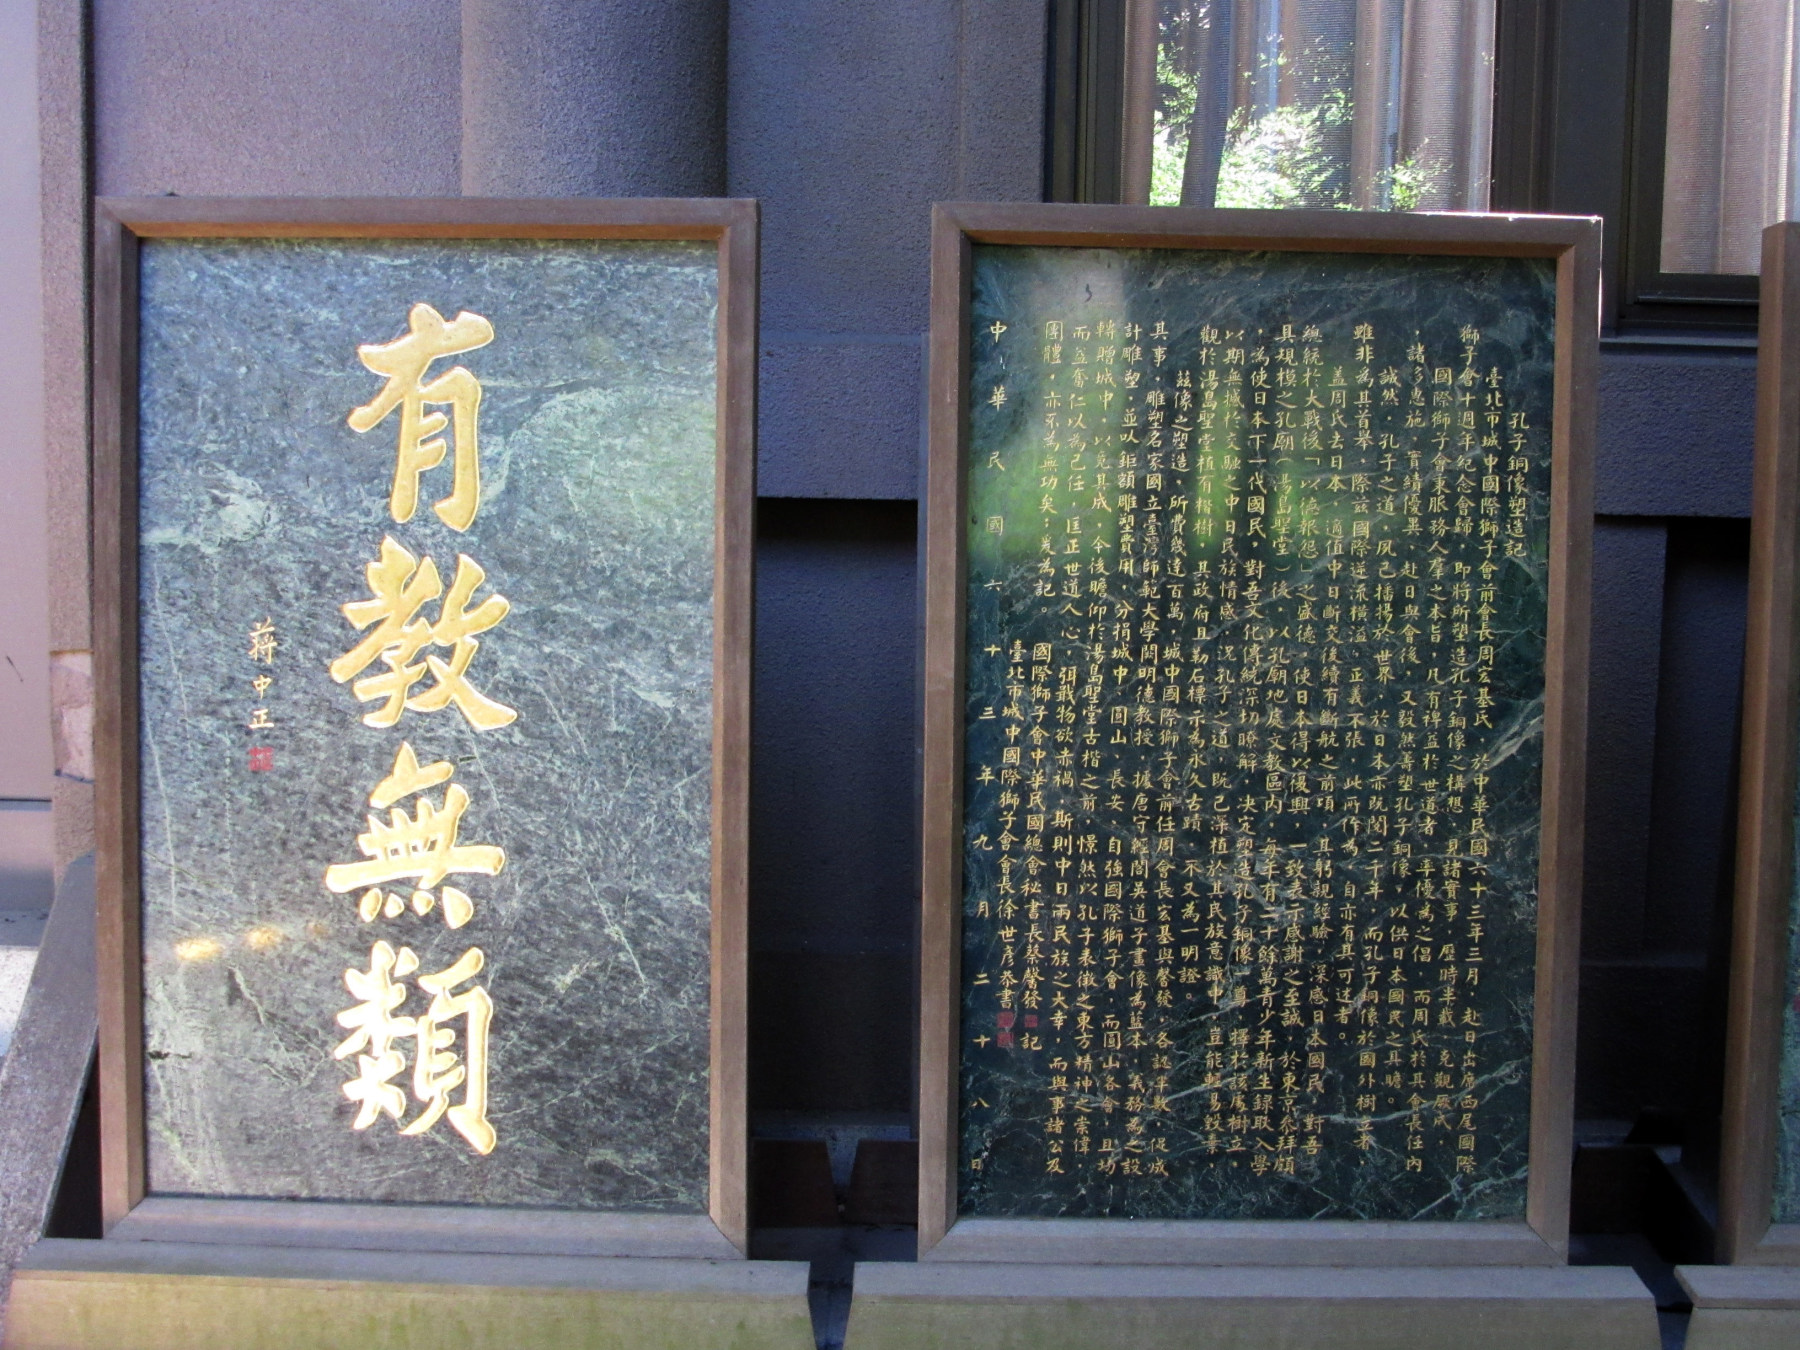 有教無類
蔣中正
孔子銅像塑造記
臺北市城中國際獅子會前會長周宏基氏，於中華民國六十三年三月，赴日出席西尾國際
獅子會十週年紀念會歸，即將所塑造孔子銅像之構想，見諸實事，歷時半載，克觀厥成，
國際獅子會秉服務人羣之本旨，凡有裨益於世道者，率優為之倡，而周氏於其會長任內
，諸多惠施，實績優異，赴日與會後，又毅然籌塑孔子銅像，以供日本國民之具瞻。
誠然，孔子之道，夙已播揚於世界，於日本亦既閱二千年，而孔子銅像於國外樹立者，
雖非為其首舉，際茲國際逆流橫溢，正義不張，此所作為，自亦有其可述者。
蓋周氏去日本，適值中日斷交後續有斷航之前項，其躬親經驗，深感日本國民，對吾
總統於大戰後「以德報怨」之盛德，使日本得以復興，一致表示感謝之至誠，於東京參拜頗
具規模之孔廟（湯島聖堂）後，以孔廟地處文教區內，每年有二十餘萬青少年新生錄取入學
，為使日本下一代國民，對吾文化傳統深切瞭解，決定塑造孔子銅像一尊，擇於該處樹立，
以期無摵於交融之中日民族情感，况孔子之道，既已深植於其民族意識中，豈能輕易毀棄，
觀於湯島聖堂植有楷樹，其政府且勒石標示為永久古蹟，不又為一明證。
茲像之塑造，所費幾達百萬，城中國際獅子會前任周會長宏基與馨發，各認半數，促成
其事，雕塑名家國立臺灣師範大學闕明德教授，據唐守經閣吳道子畫像為藍本，義務為之設
計雕塑，並以鉅額雕塑費用，分捐城中、圓山、長安、自強國際獅子會，而圓山各會，且均
轉贈城中，以竟其成，今後瞻仰於湯島聖堂古楷之前，憬然以孔子表徵之東方精神之崇偉，
而益奮仁以為己任，匡正世道人心，弭戢物欲赤禍，斯則中日兩民族之大幸，而與事諸公及
團體，亦不為無功矣；爰為記。
國際獅子會中華民國總會秘書長蔡馨發記
臺北市城中國際獅子會會長徐世彥恭書
中華民國六十三年九月二十八日